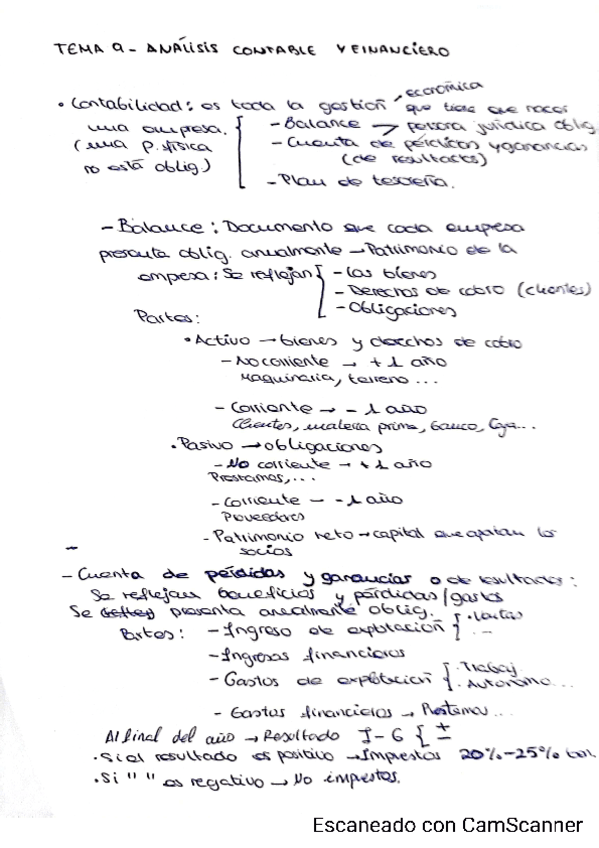 TEMA 9 - ANÁLISIS CONTABLE Y FINANCIERO
• Contabilidad: es toda la gestión económica que tiene que hacer
una empresa. { - Balance → persona jurídica oblig.
(una p. física - Cuenta de pérdidas y ganancias
no está oblig.) (de resultados)
- Plan de tesorería.
- Balance: Documento que cada empresa
presenta oblig. anualmente → Patrimonio de la
empresa: Se reflejan { - Los bienes
- Derechos de cobro (clientes)
- Obligaciones
Partes:
• Activo → bienes y derechos de cobro
- No corriente → + 1 año
Maquinaria, terreno...
- Corriente → - 1 año
Clientes, materia prima, banco, Caja...
• Pasivo → obligaciones
- No corriente → + 1 año
Prestamos,...
- Corriente - - 1 año
Proveedores
- Patrimonio neto → capital que aportan los
socios
- Cuenta de pérdidas y ganancias o de resultados:
Se reflejan beneficios y pérdidas/gastos
Se presenta anualmente oblig.
Partes: - Ingreso de explotación { • Ventas
...
- Ingresos financieros
- Gastos de explotación { • Trabaj.
• Autónomo...
- Gastos financieros → Prestamos...
Al final del año → Resultado I - G { ±
• Si el resultado es positivo → Impuestos 20% - 25%
• Si " " es negativo → No impuestos.
Escaneado con CamScanner